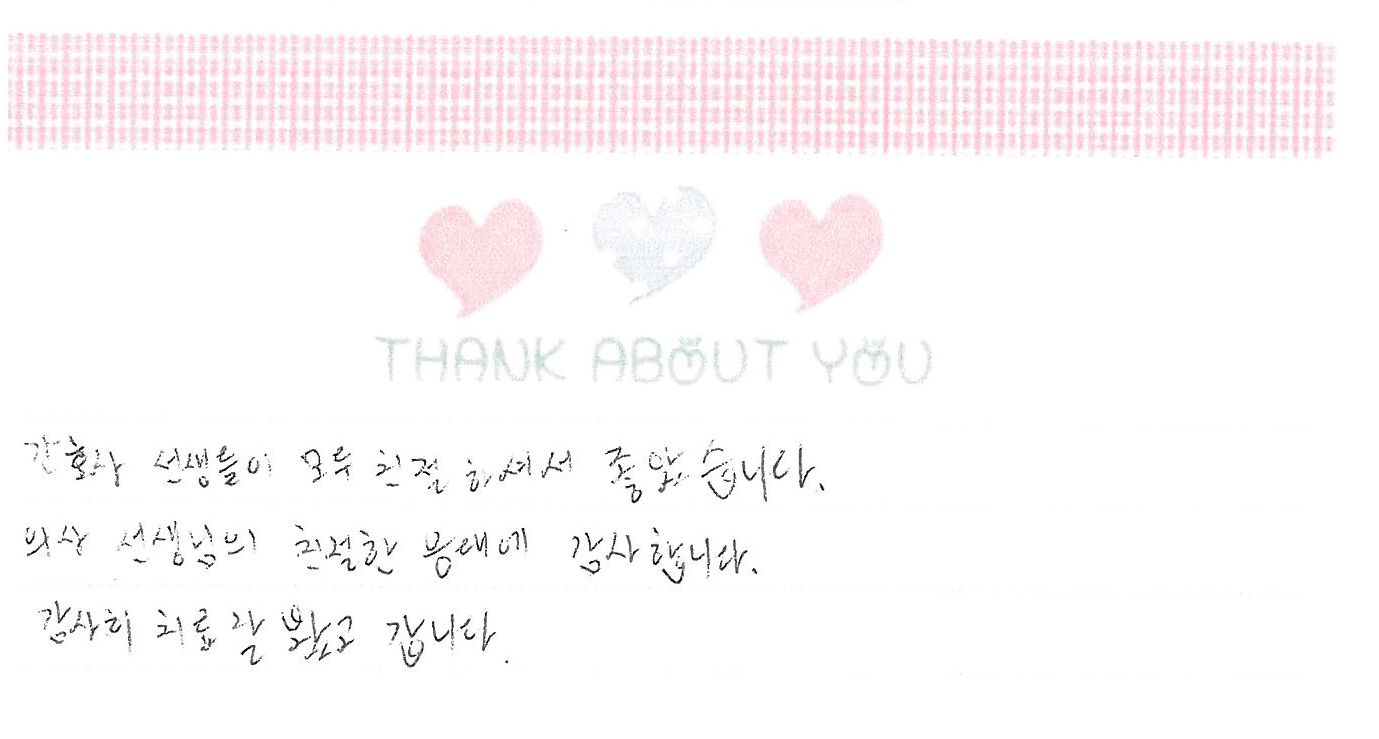 THANK ABOUT YOU
간호사 선생들이 모두 친절 하셔서 좋았습니다.
의상 선생님의 친절한 봉대에 감사합니다.
감사히 치료 잘 봤고 갑니다.